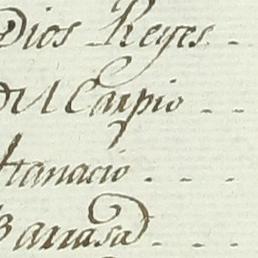 Dios Reyes. -
Del Carpio - -
Atanacio. - -
Barrasa. - -